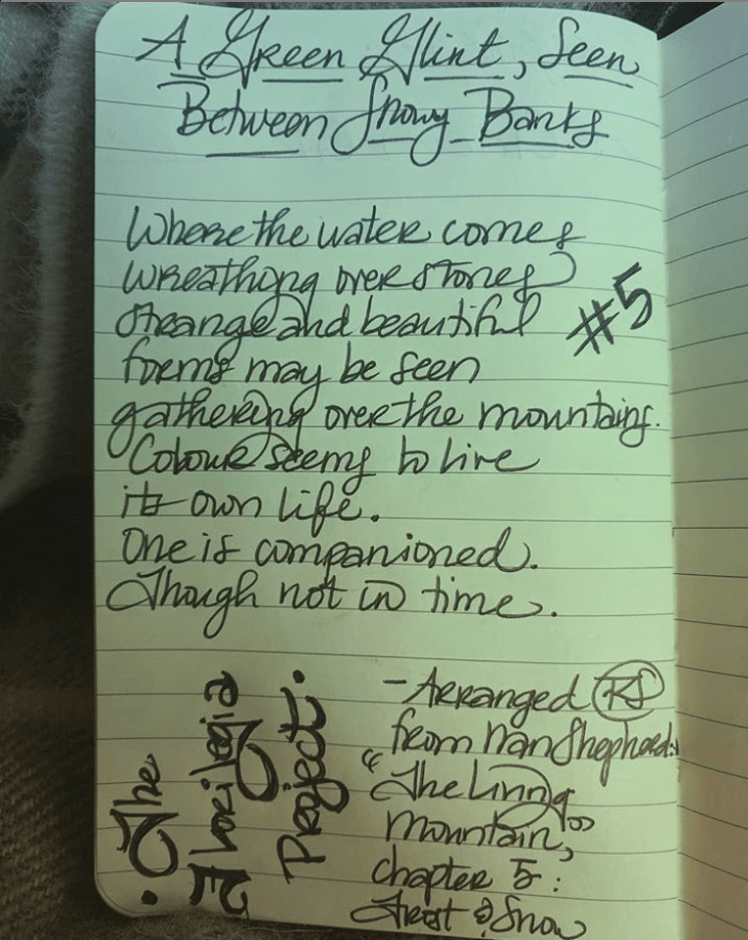 A Green Glint, Seen
Between Snowy Banks
Where the water comes
wreathing over stones
strange and beautiful
forms may be seen
gathering over the mountains.
Colour seems to live
its own life.
One is companioned.
Though not in time.
#5
- Arranged RS
from Nan Shepherd:
"The Living
Mountain,"
chapter 5:
Frost & Snow
• The
Florilegia
Project.